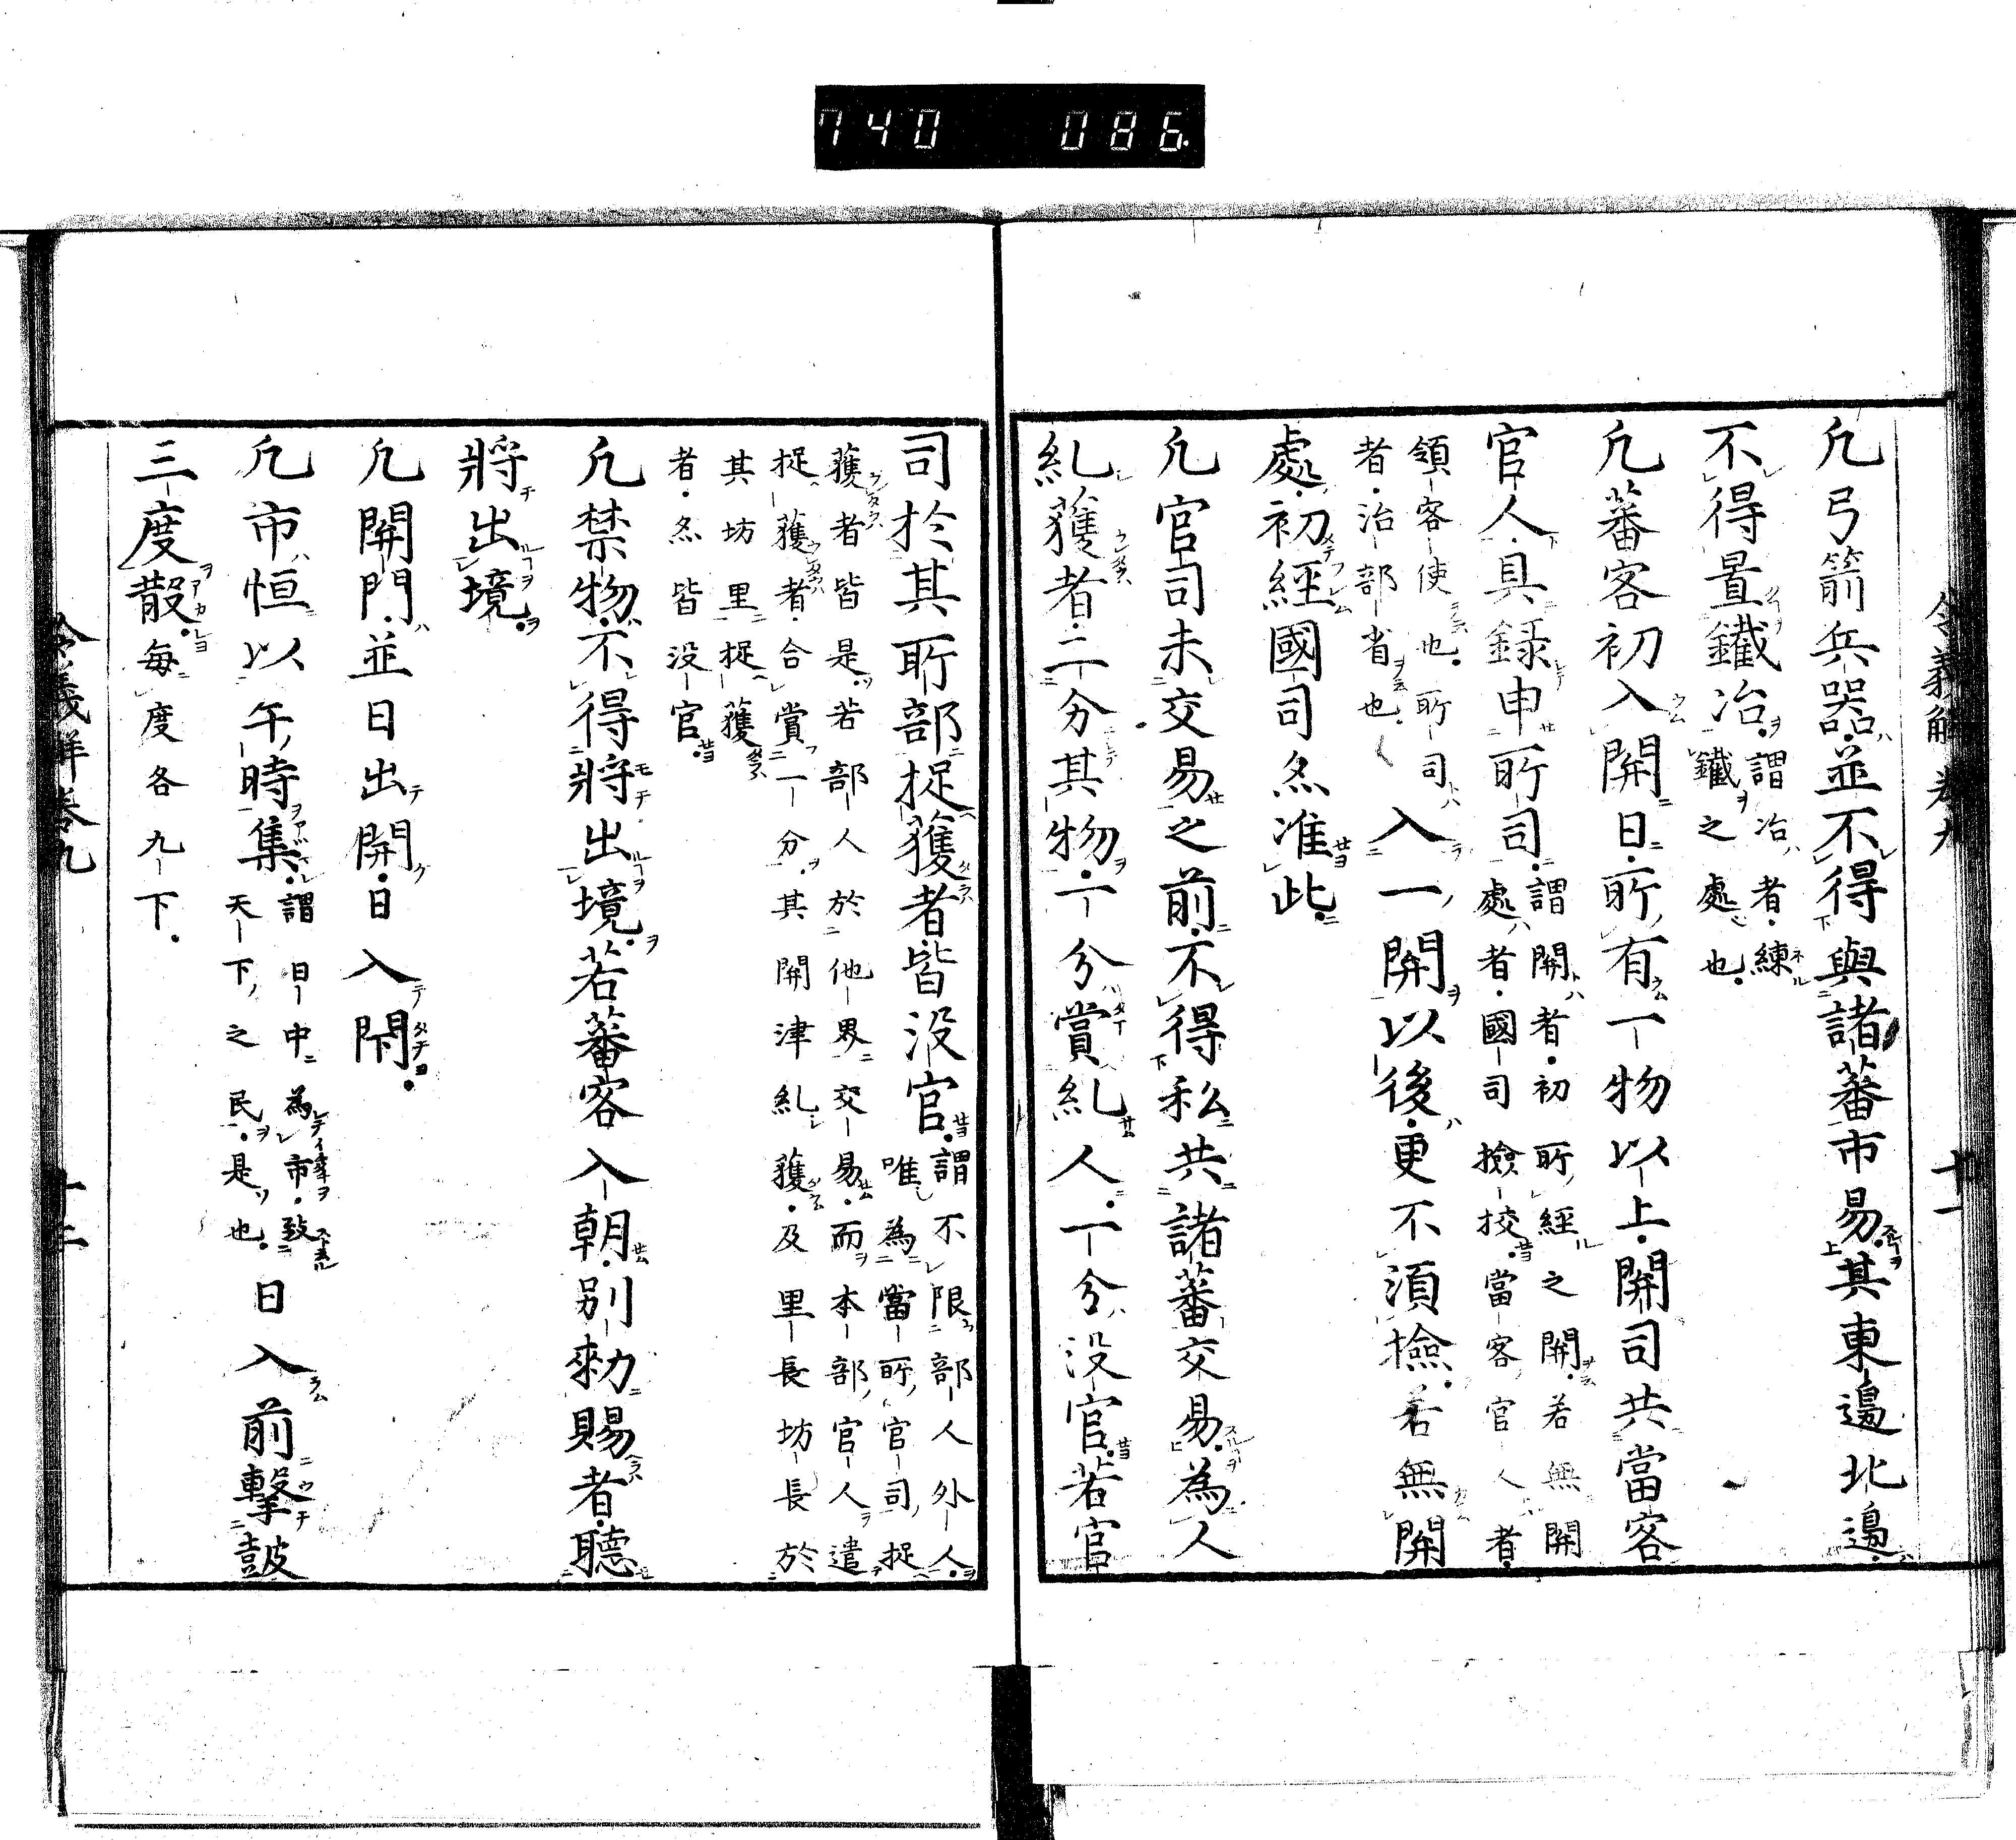 740 086
令義解 卷九 十一
凡弓箭兵器並不得與諸蕃市易其東邊北邊
不得置鐵冶謂冶者練
鐵之處也
凡蕃客初入關日所有一物以上關司共當客
官人具録申所司謂關者初所經之關若無關
處者國司撿挍當客官人者
領客使也所司
者治部省也入一關以後更不須撿若無關
處初經國司亦准此
凡官司未交易之前不得私共諸蕃交易為人
糺獲者二分其物一分賞糺人一分没官若官
司於其所部捉獲者皆没官謂不限部人外人
唯為當所官司捉
獲者皆是若部人於他界交易而本部官人遣
捉獲者合賞一分其關津糺獲及里長坊長於
其坊里捉獲
者亦皆没官
凡禁物不得將出境若蕃客入朝別勑賜者聽
將出境
凡關門並日出開日入閇
凡市恒以午時集謂日中為市致
天下之民是也日入前擊鼓
三度散每度各九下
令義解 卷九 十二